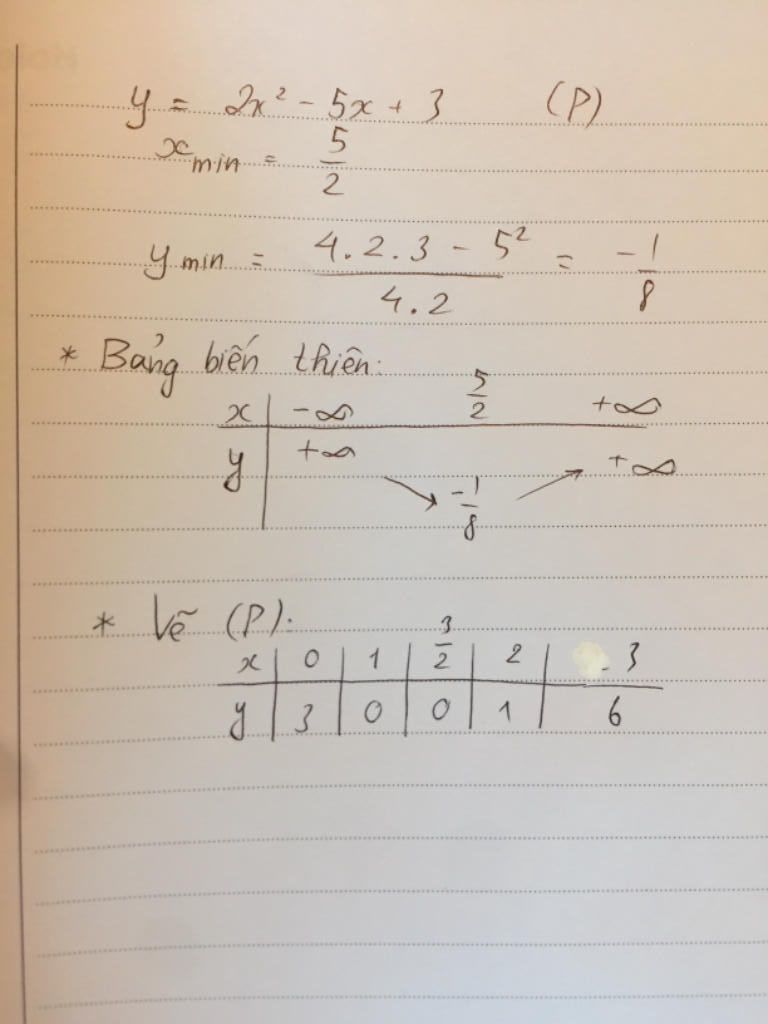 y = 2x² - 5x + 3 (P)
x min = 5/2
y min = (4.2.3 - 5²)/(4.2) = -1/8
* Bảng biến thiên:
x | -∞ 5/2 +∞
y | +∞ ↘ -1/8 ↗ +∞
* Vẽ (P):
x | 0 | 1 | 3/2 | 2 | 3
y | 3 | 0 | 0 | 1 | 6